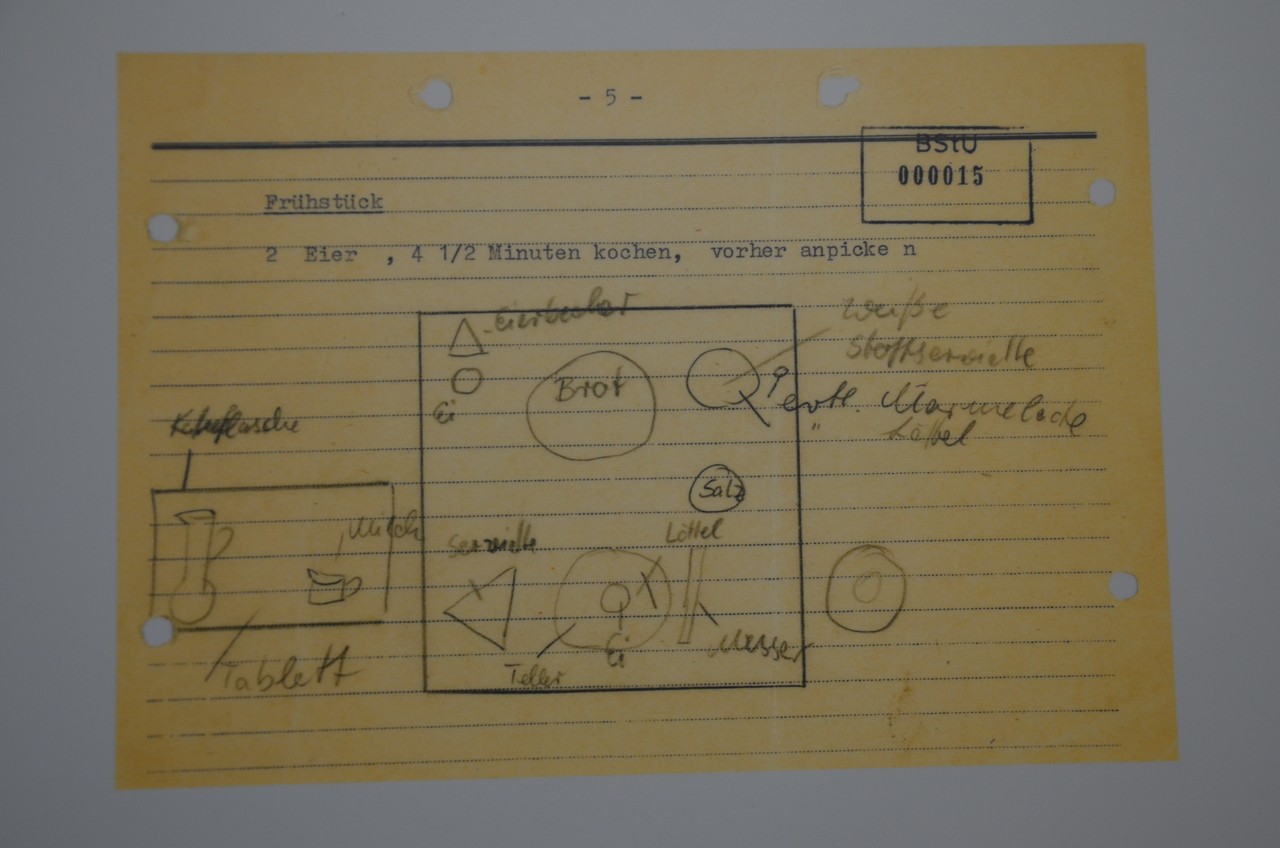 - 5 -
BStU
000015
Frühstück
2 Eier , 4 1/2 Minuten kochen, vorher anpicke n
Eierbecher
Weiße
Stoffserviette
Brot
Ei
evtl. Marmelade
" Löffel
Salz
Milch
Serviette
Löffel
Messer
Ei
Teller
Tablett